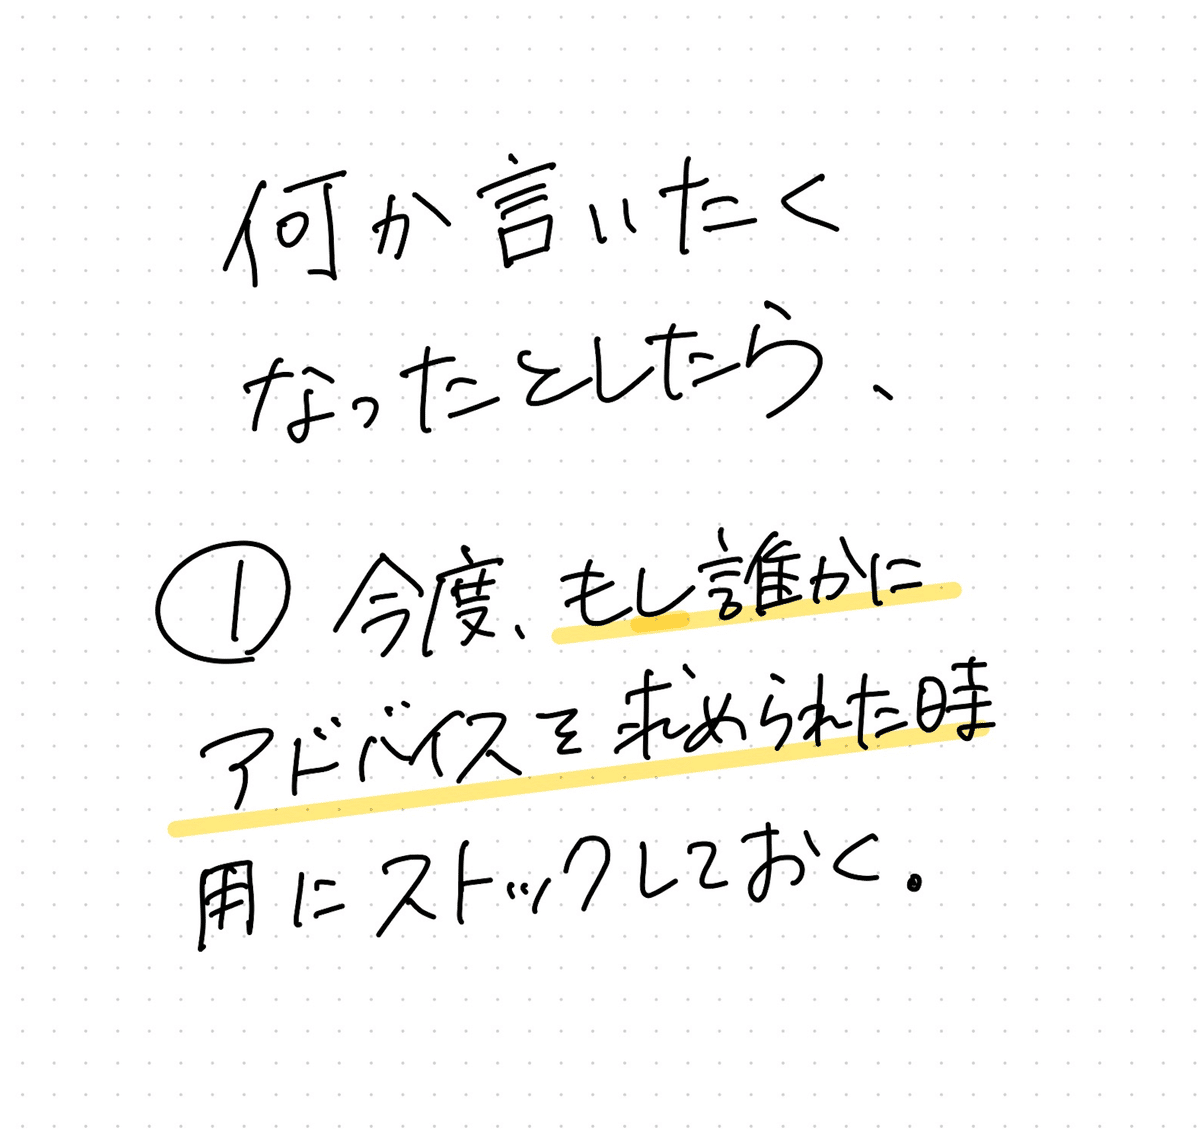 何か言いたく
なったとしたら、
① 今度、もし誰かに
アドバイスを求められた時
用にストックしておく。